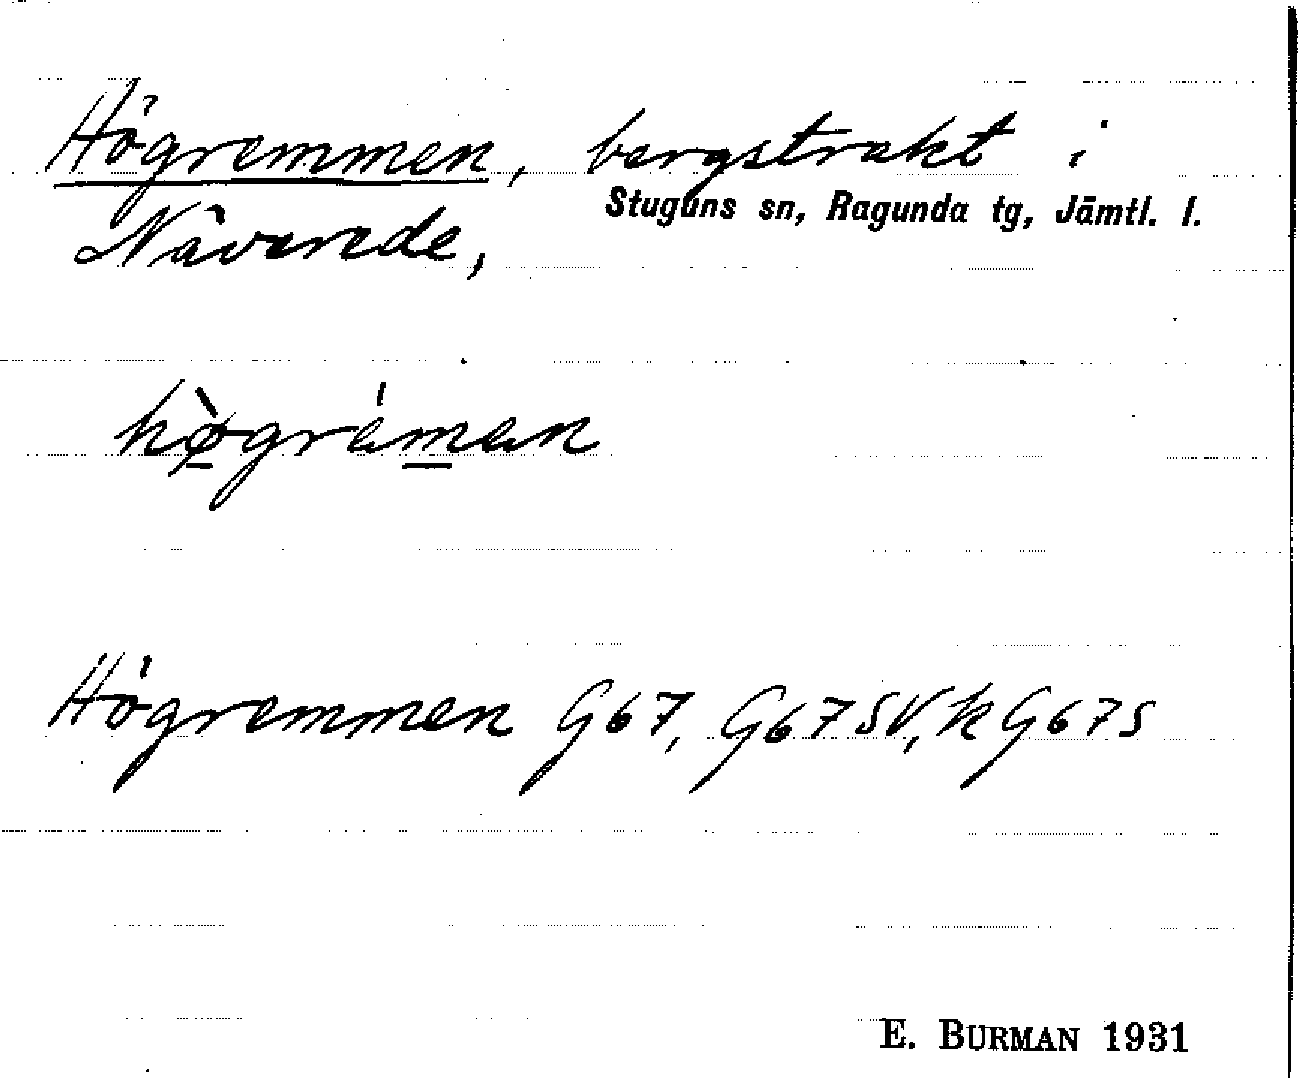 Högremmen, bergstrakt i
Stuguns sn, Ragunda tg, Jämtl. l.
Näverede,
hø̀grèmen
Högremmen G67, G67SV, k G67S
E. BURMAN 1931